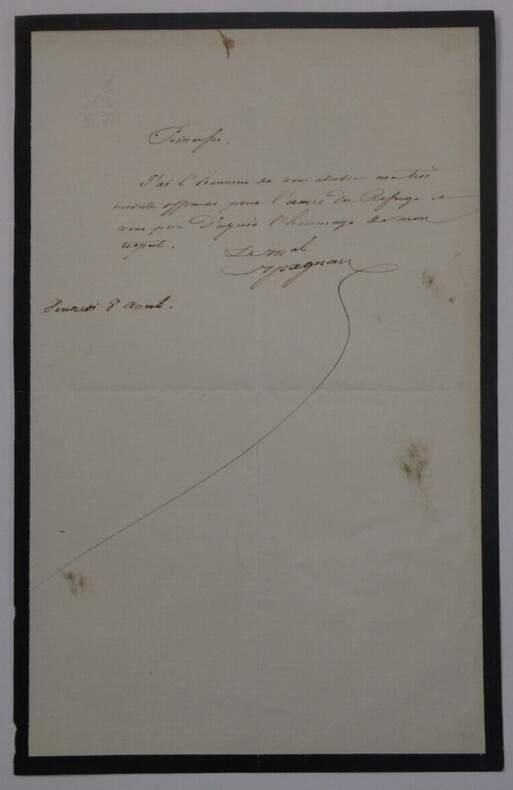 Princesse.
J'ai l'honneur de vous adresser ma très
modeste offrande pour l'œuvre du Refuge et
vous prie d'agréer l'hommage de mon
respect.
Le Mal
Vendredi 8 Avril.